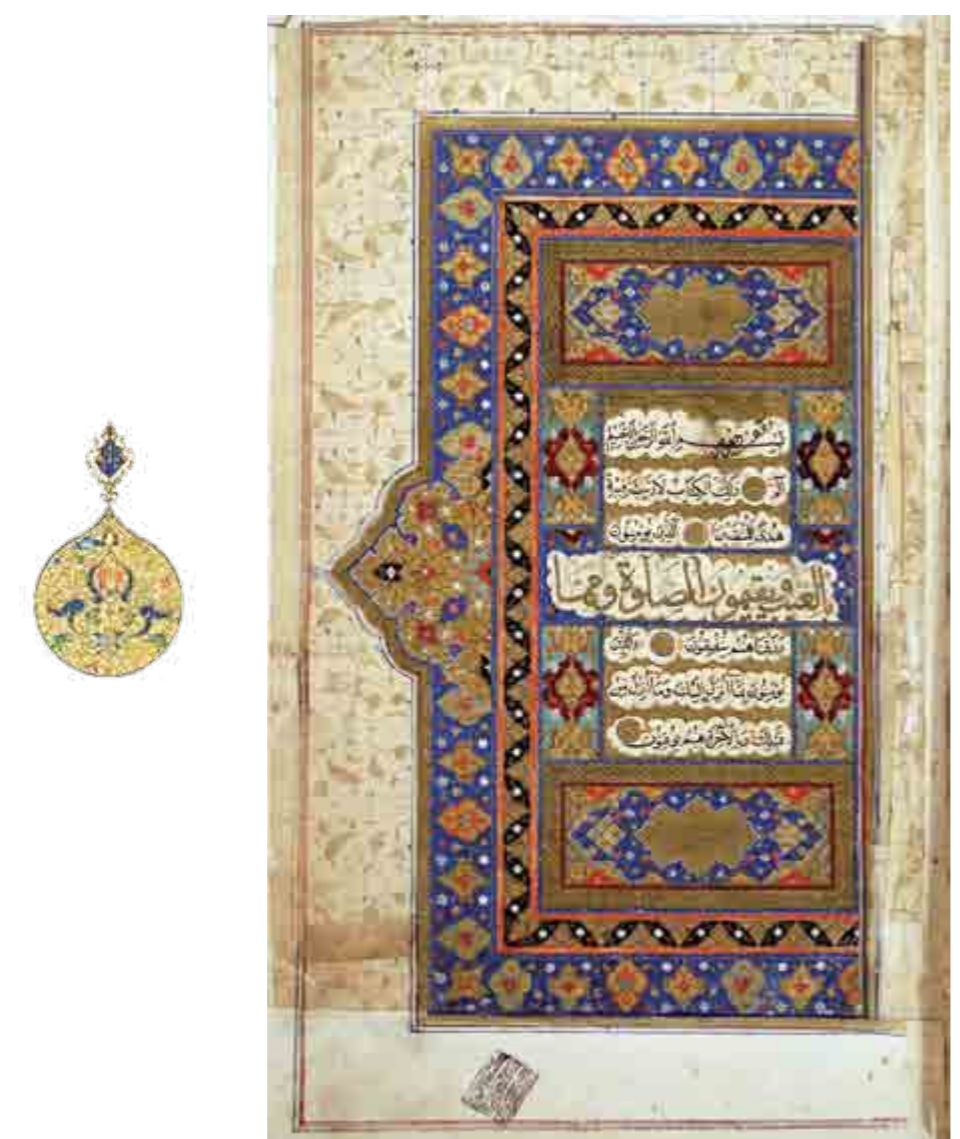 بسم الله الرحمن الرحيم
الم ذلك الكتاب لا ريب فيه
هدى للمتقين الذين يؤمنون
بالغيب ويقيمون الصلوة ومما
رزقناهم ينفقون والذين
يؤمنون بما أنزل إليك وما أنزل من
قبلك وبالآخرة هم يوقنون